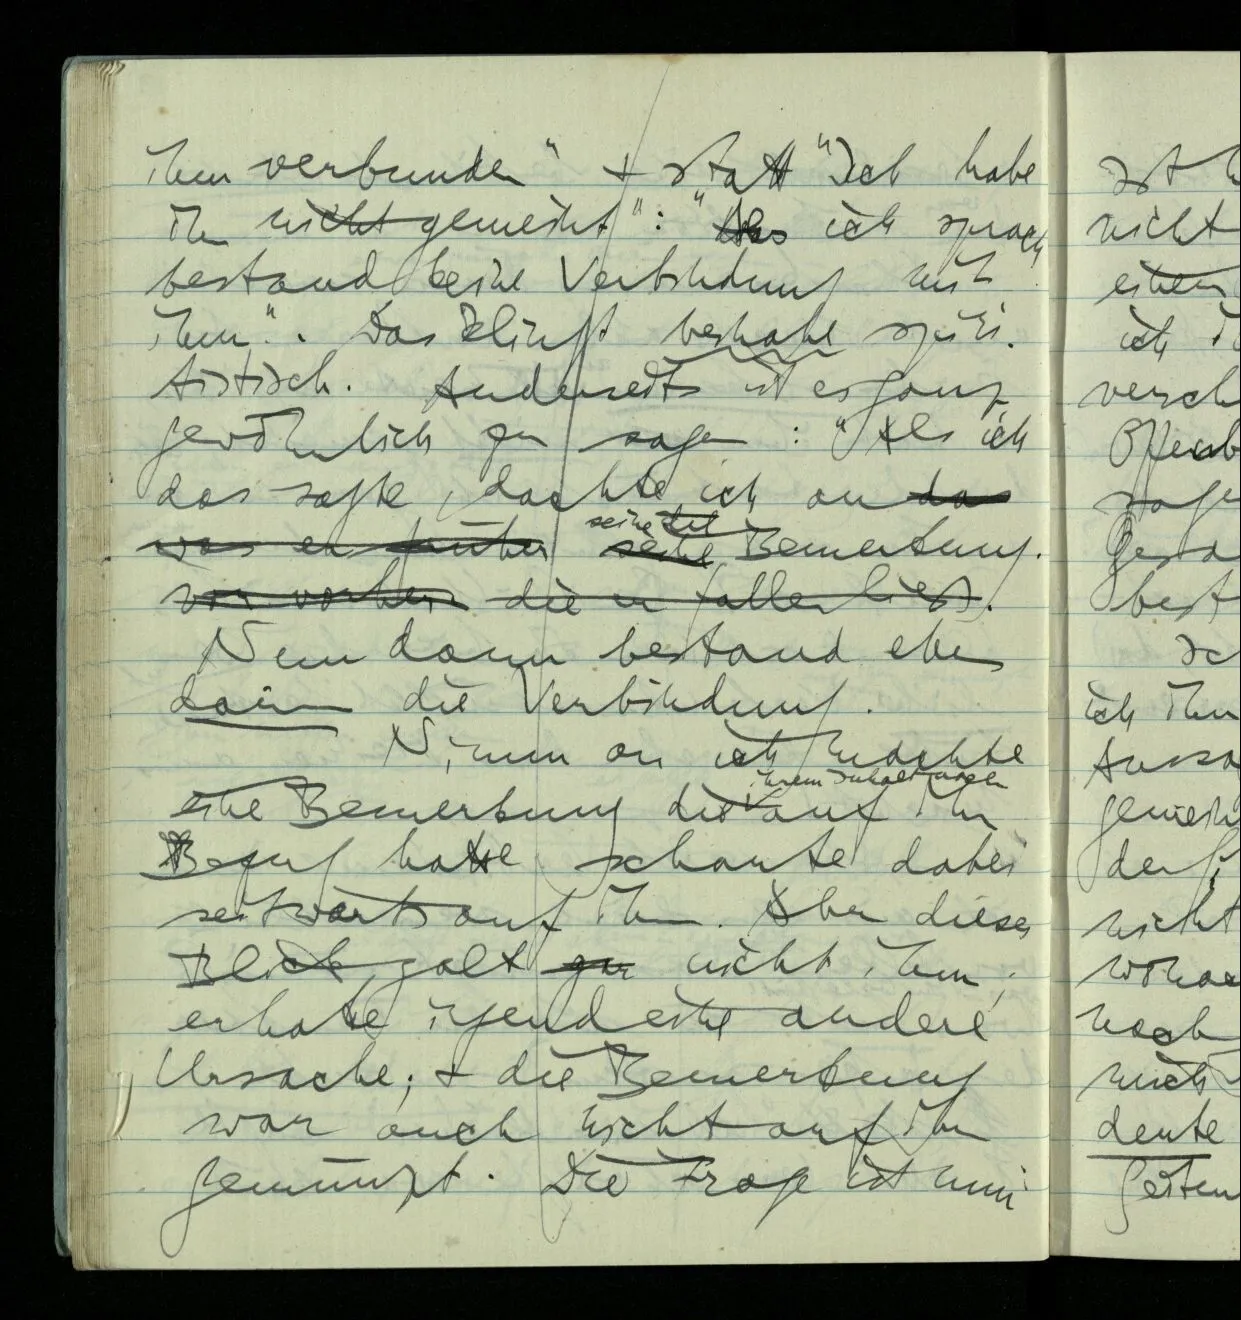 ihm verbunden" + statt "Ich habe
ihn nicht gemeint": "Als ich sprach
bestand keine Verbindung mit
ihm". Das klingt beinahe spiri-
tistisch. Anderseits ist es ganz
gewöhnlich zu sagen: "Als ich
das sagte, dachte ich an da
seine
was er früher seine Bemerkung.
vorher die er fallen ließ.
Nun dann bestand eben
darin die Verbindung.
Nimm an ich machte
ihrem Inhalt nach
eine Bemerkung die auf ihn
Bezug hatte, schaute dabei
seitwärts auf ihn. Aber dieser
Blick galt gar nicht ihm,
er hatte irgend eine andere
Ursache; + die Bemerkung
war auch nicht auf ihn
gemünzt. Die Frage ist nun
ist
nicht
einen
ich
sage
best
ich ihm
nicht
noch
mich
deute